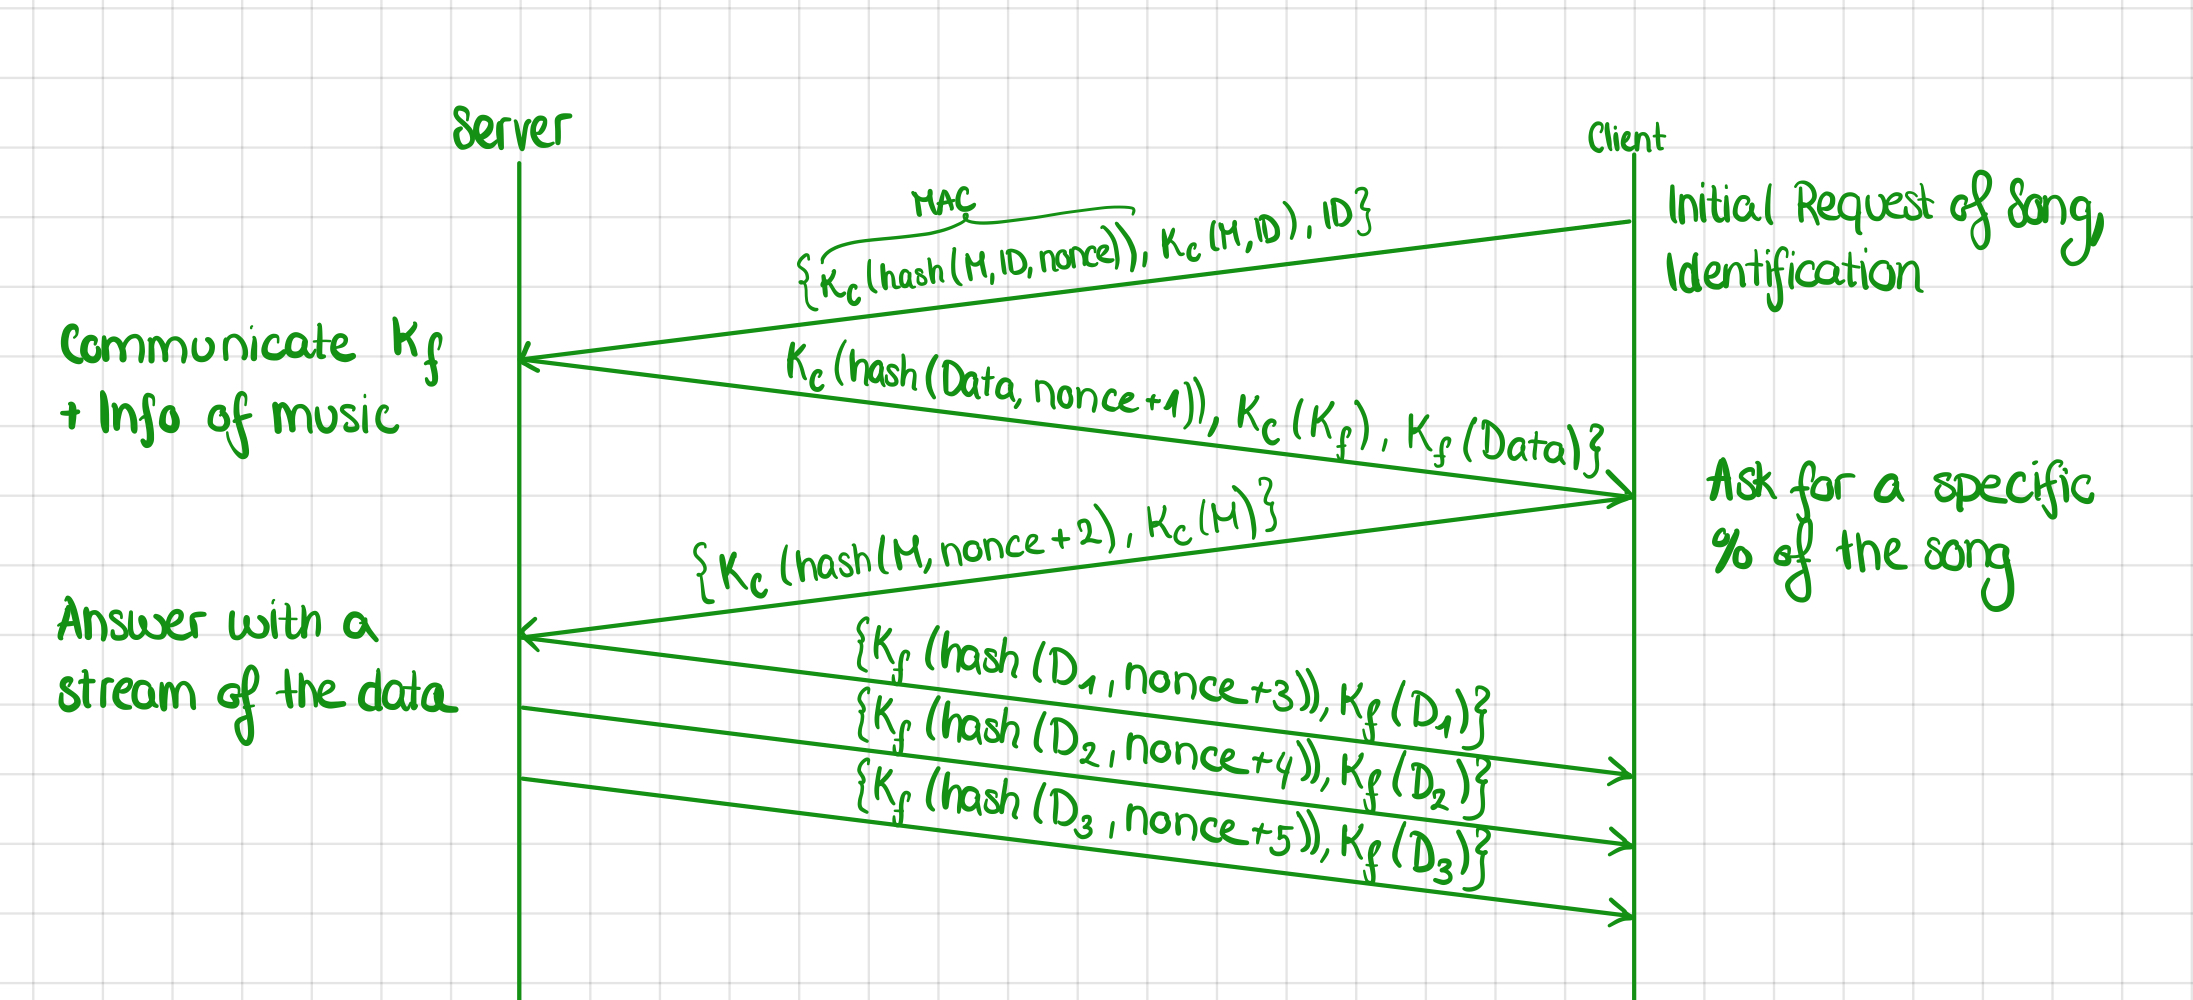 Server
Client
MAC
{Kc (hash(M, ID, nonce)), Kc (M, ID), ID}
Initial Request of Song,
Identification
Communicate Kf
+ Info of music
Kc (hash(Data, nonce+1)), Kc (Kf), Kf (Data)}
Ask for a specific
% of the song
{Kc (hash(M, nonce+2), Kc (M)}
Answer with a
stream of the data
{Kf (hash (D1, nonce+3)), Kf (D1)}
{Kf (hash (D2, nonce+4)), Kf (D2)}
{Kf (hash (D3, nonce+5)), Kf (D3)}